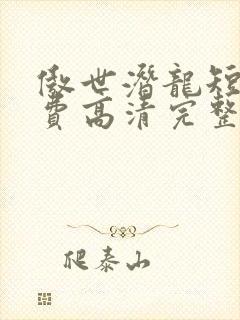 傲世潛龍短
費高清完整
爬泰山